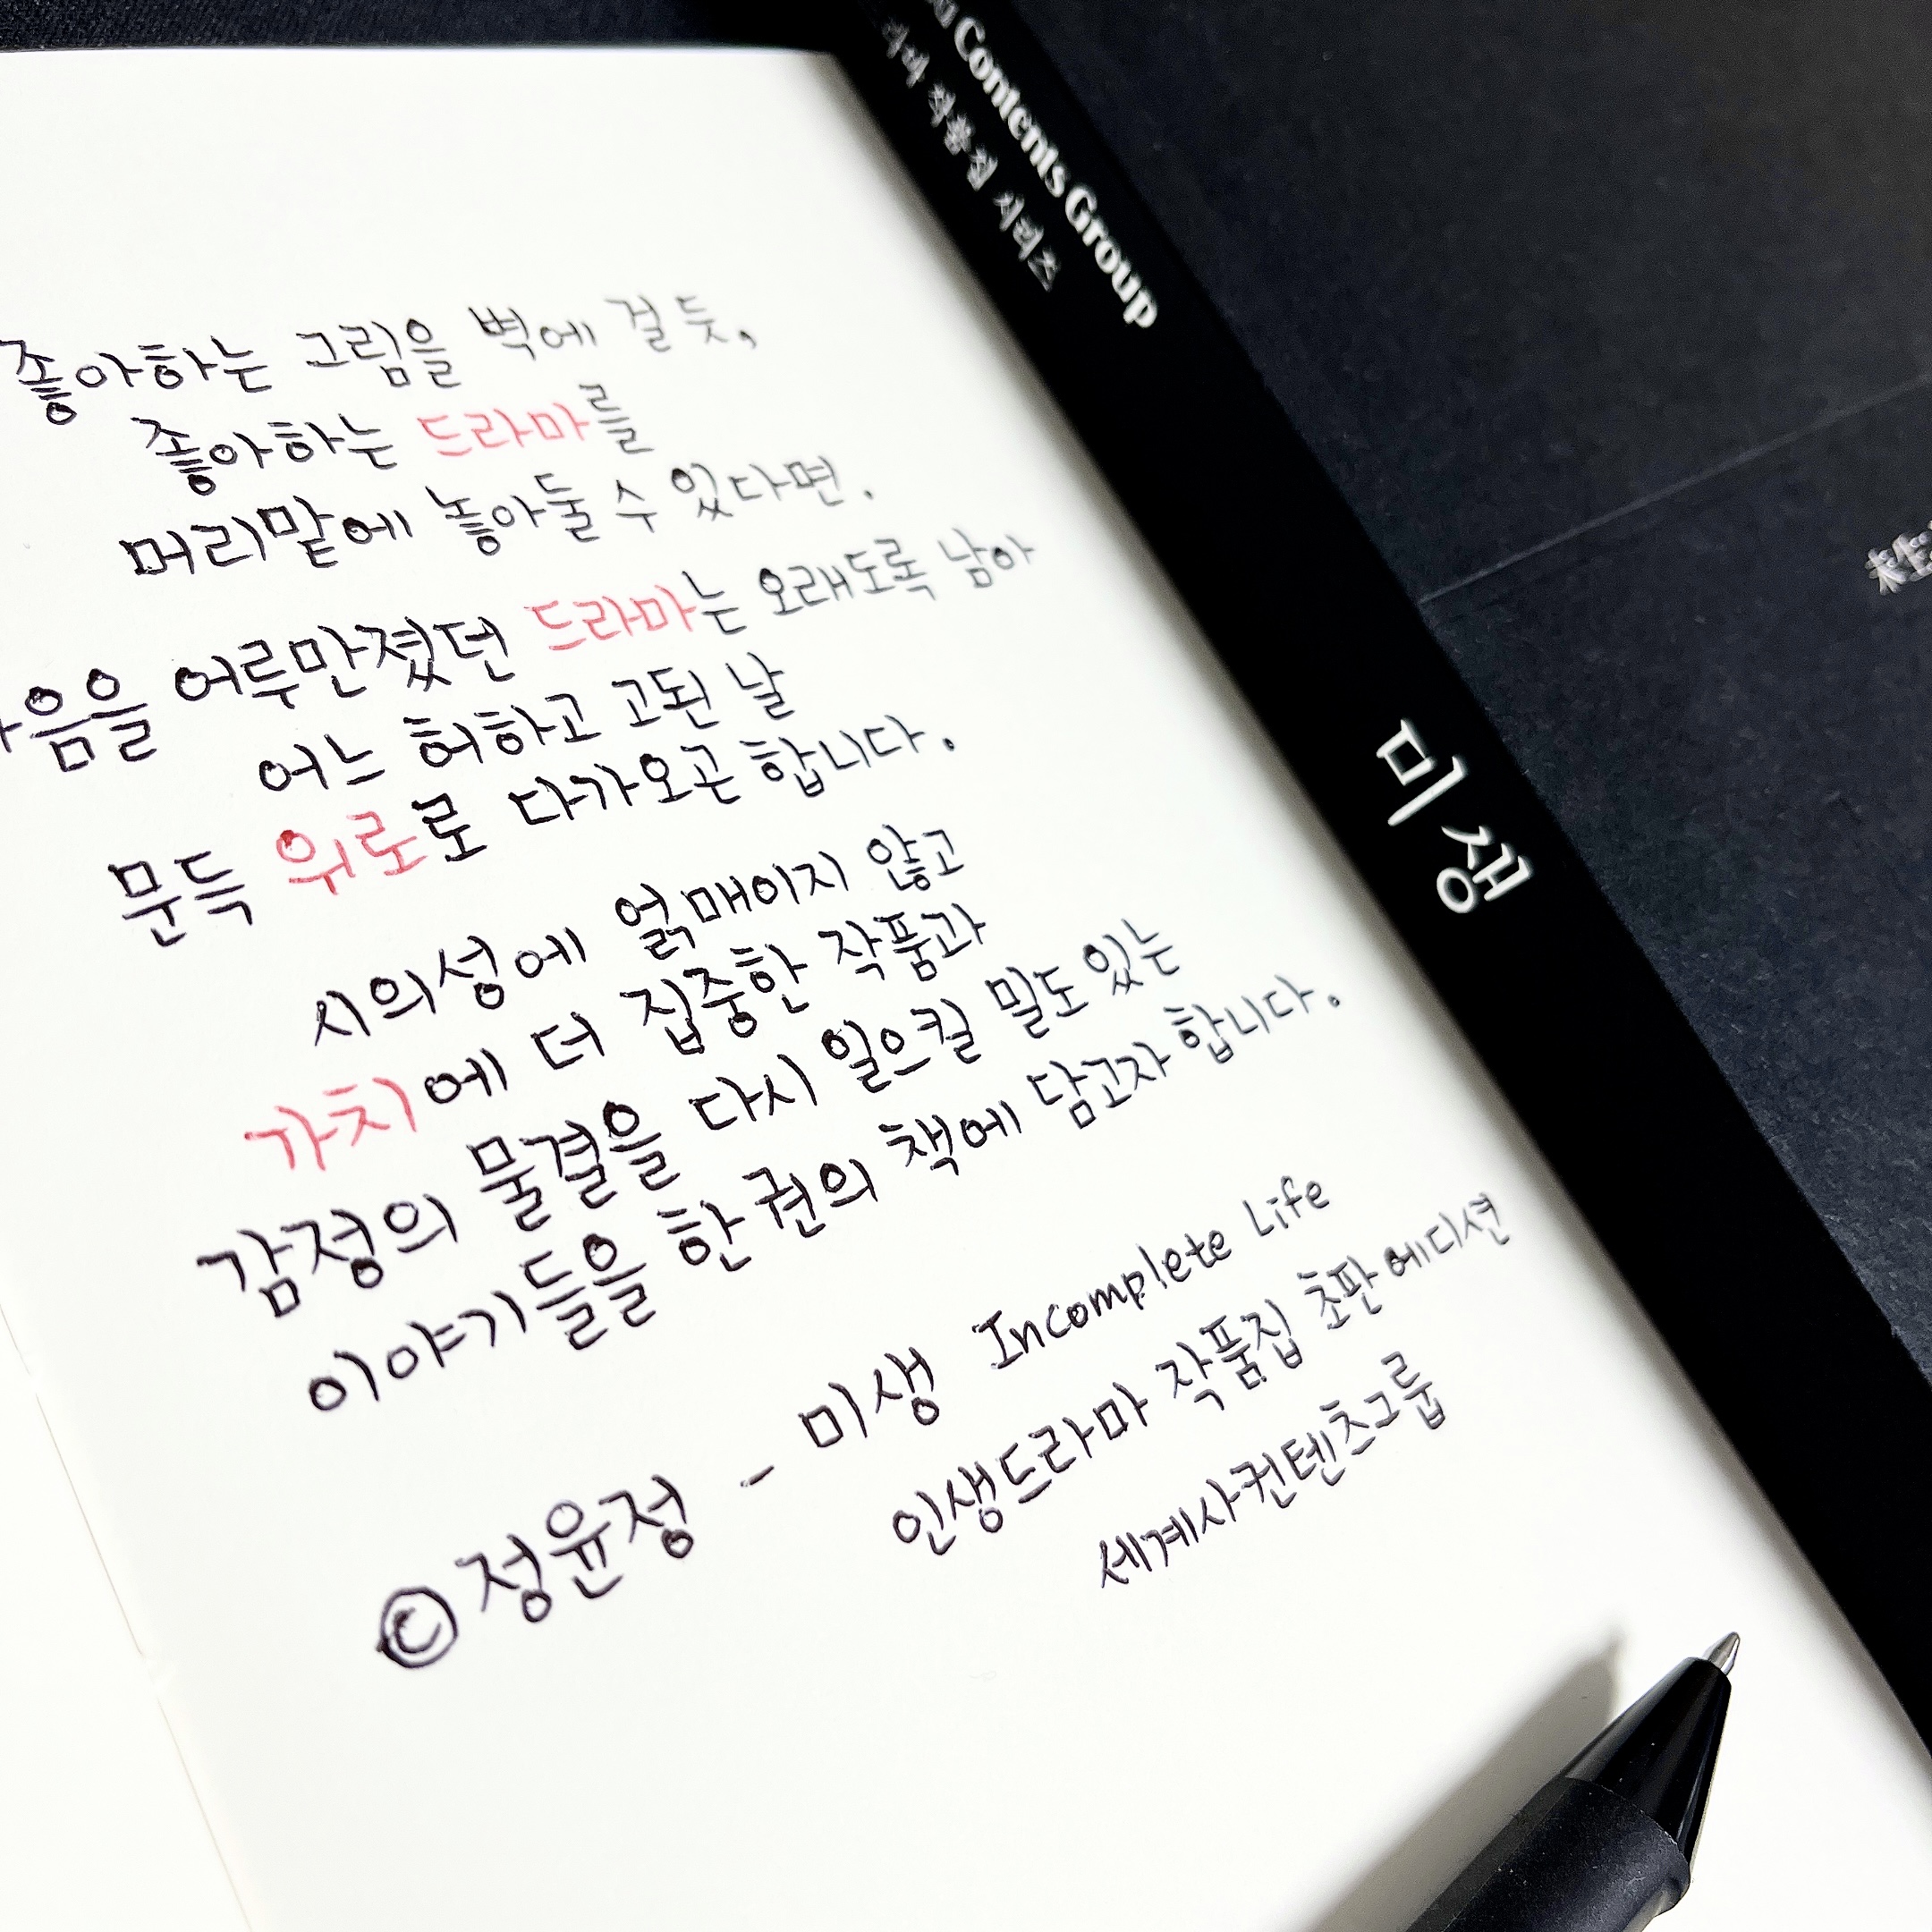 좋아하는 그림을 벽에 걸 듯,
좋아하는 드라마를
머리맡에 놓아둘 수 있다면.
음을 어루만졌던 드라마는 오래도록 남아
어느 허하고 고된 날
문득 위로로 다가오곤 합니다.
시의성에 얽매이지 않고
가치에 더 집중한 작품과
감정의 물결을 다시 일으킬 밀도 있는
이야기들을 한 권의 책에 담고자 합니다.
ⓒ정윤정 - 미생 Incomplete Life
인생드라마 작품집 초판 에디션
세계사컨텐츠그룹
Contents Group
작품집 시리즈
미생